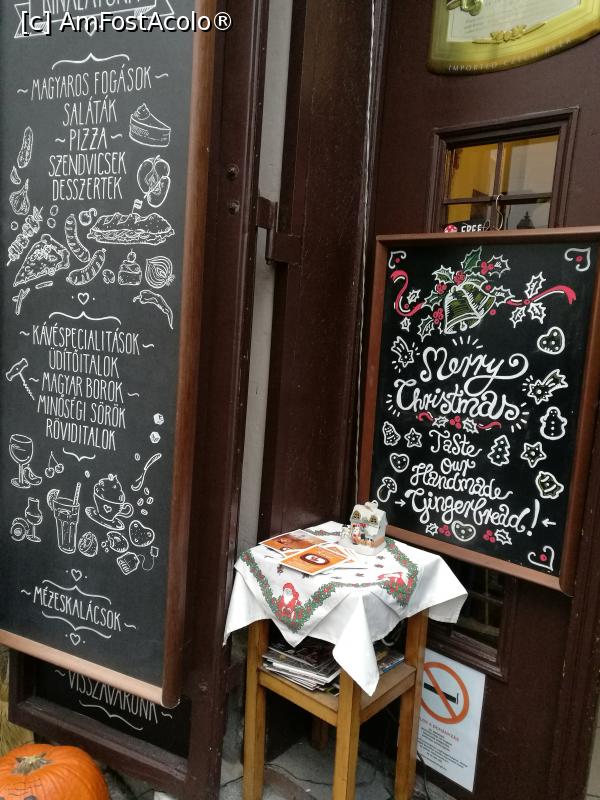 [c] AmFostAcolo®
KÍNÁLATUNK
MAGYAROS FOGÁSOK
SALÁTÁK
PIZZA
SZENDVICSEK
DESSZERTEK
KÁVÉSPECIALITÁSOK
ÜDÍTŐITALOK
MAGYAR BOROK
MINŐSÉGI SÖRÖK
RÖVIDITALOK
MÉZESKALÁCSOK
VISSZAVÁRUNK
IMPORTED
FREE
Merry
Christmas
Taste
our
Handmade
Gingerbread!